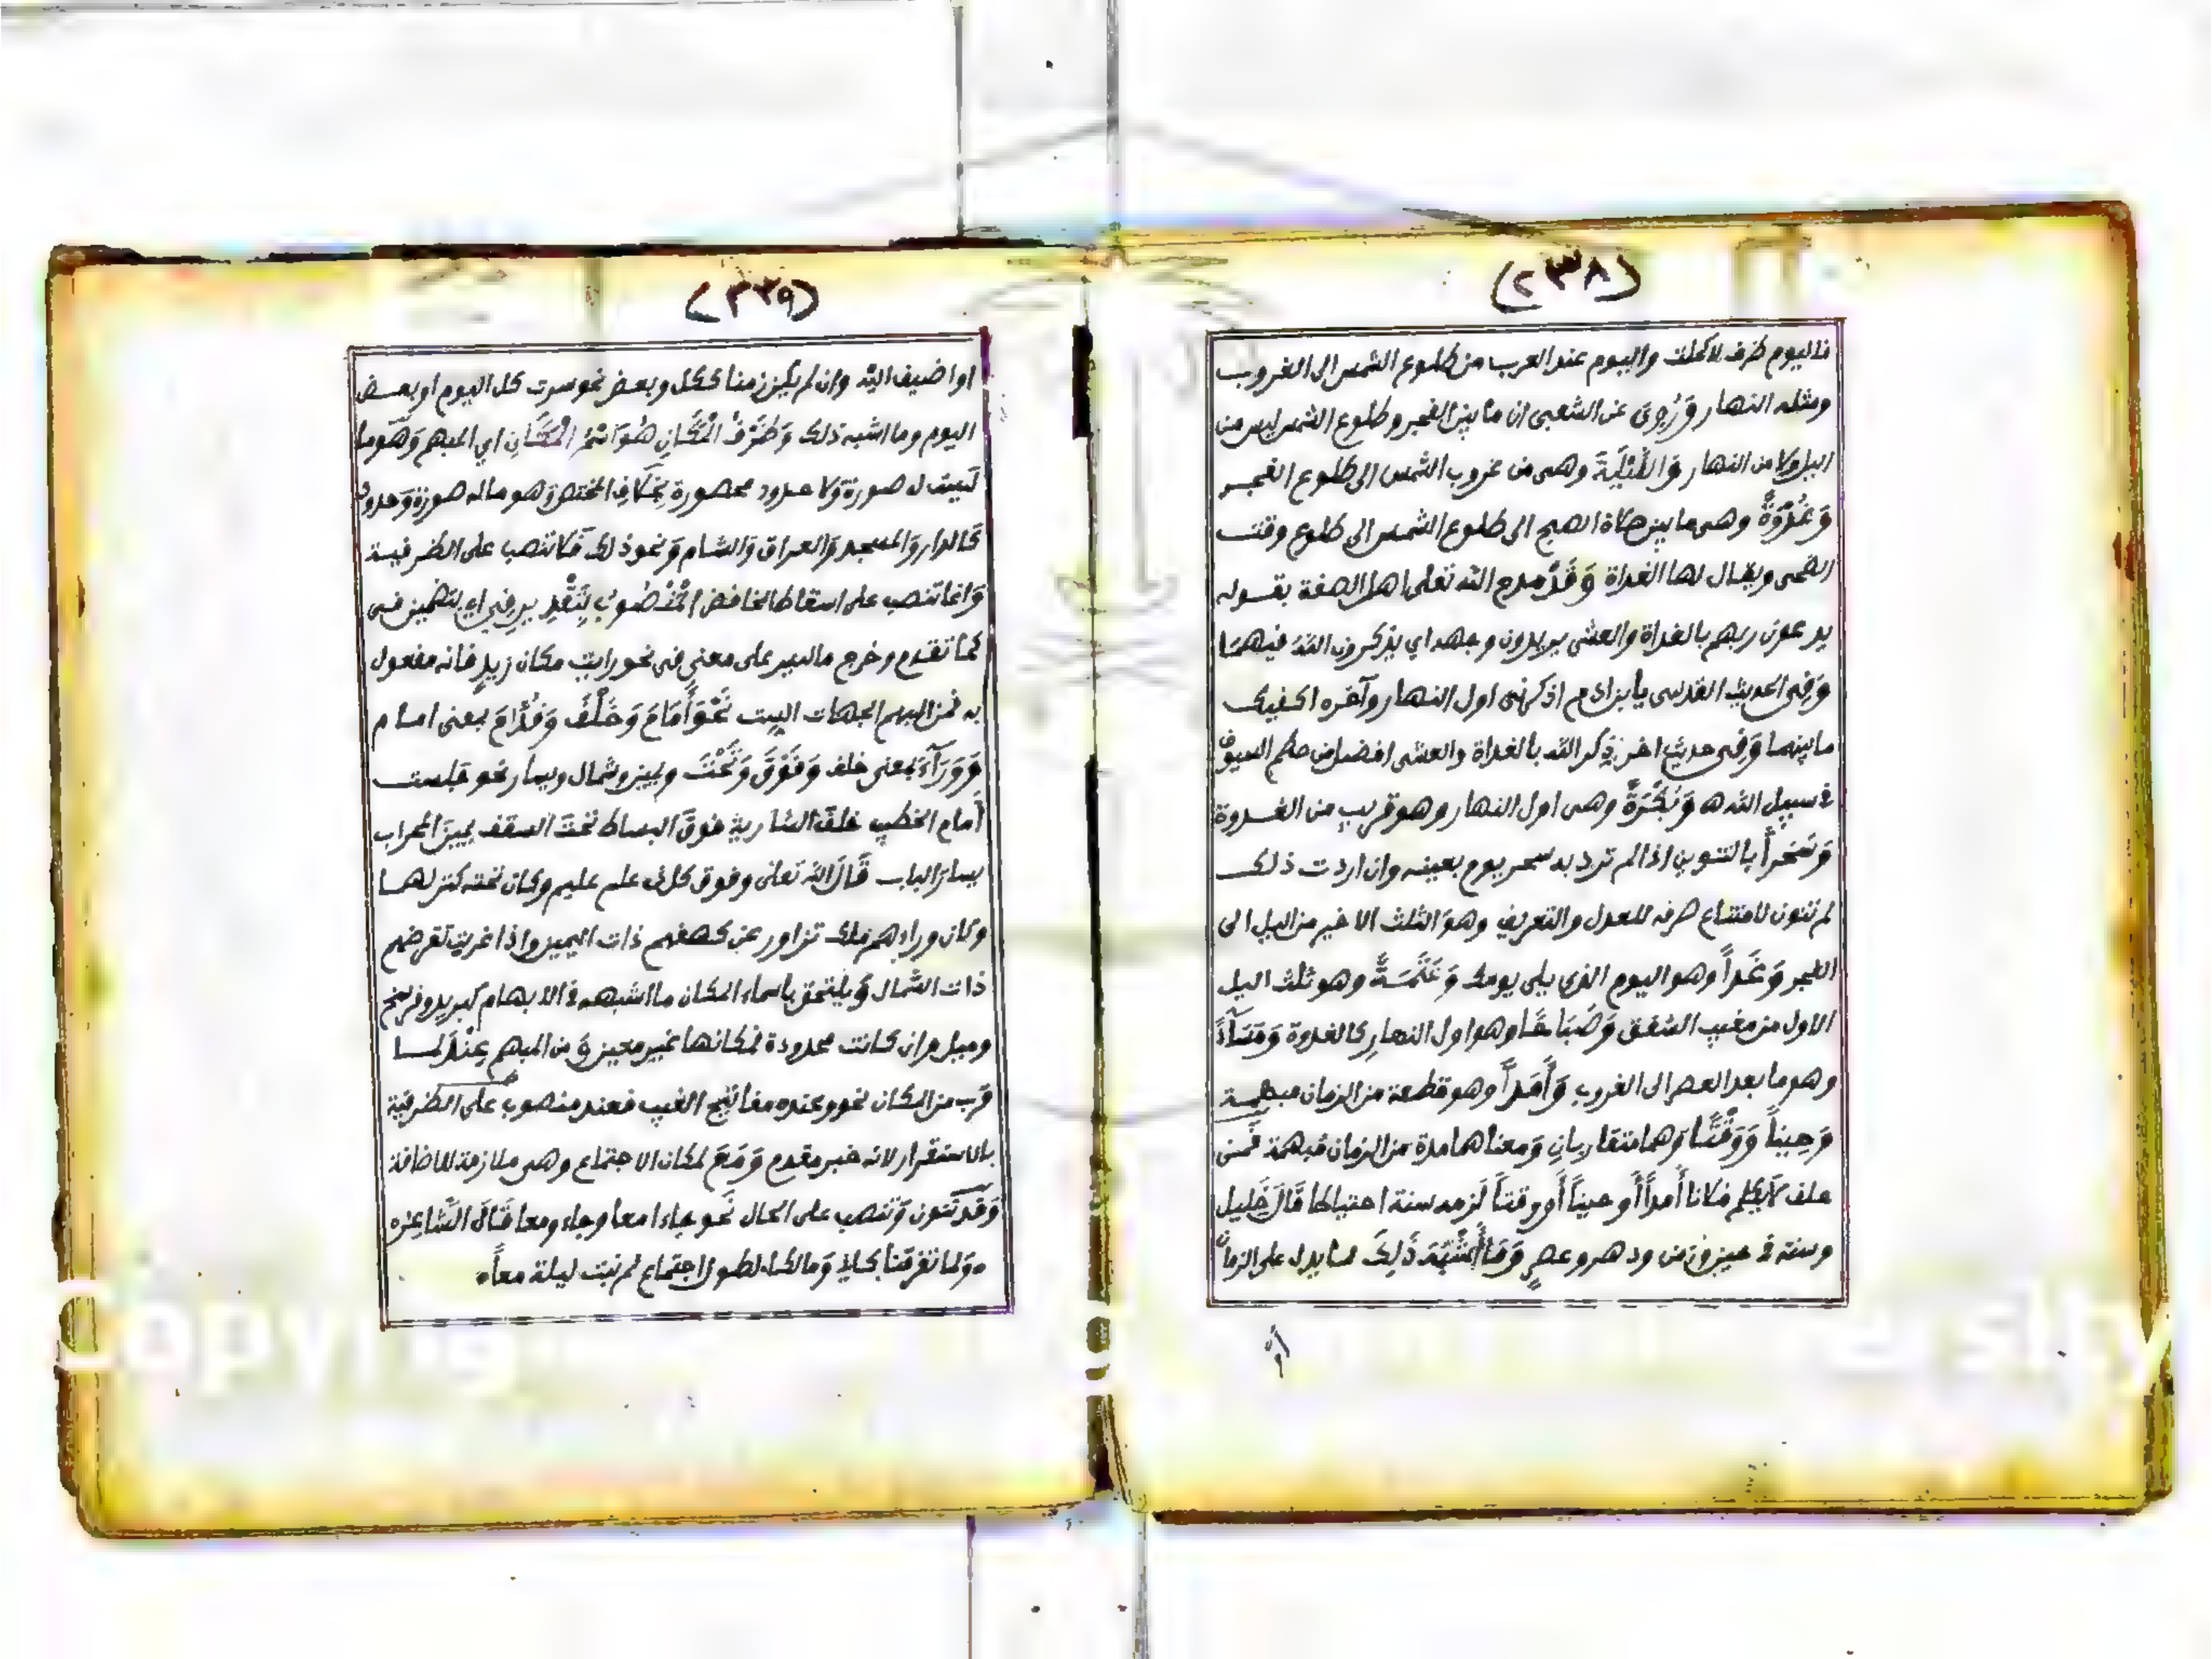 (٢٣٨)
فاليوم ظرف لاكملت واليوم عند العرب من طلوع الشمس الى الغروب
ومثله النهار وَرُوِىَ عن الشعبى ان ما بين الفجر وطلوع الشمس ليس من
اليل ولا من النهار وَاللَّيْلَةَ وهى من غروب الشمس الى طلوع الفجر
وَغُدْوَةً وهى ما بين صلاة الصبح الى طلوع الشمس الى طلوع وقت
الضحى ويقال لها الغداة وَقَدْ مدح الله تعلى اهل الصفة بقوله
يدعون ربهم بالغداة والعشى يريدون وجهه اي يذكرون الله فيهما
وَفِى الحديث القدسى يا بن ادم اذكرنى اول النهار وآخره اكفيك
ما بينهما وَفِى حديث اخر ذكر الله بالغداة والعشى افضل من حطم السيوف
في سبيل الله ه وَبُكْرَةً وهى اول النهار وهو قريب من الغدوة
وَسَحَراً بالتنوين اذا لم ترد به سحر يوم بعينه وان اردت ذلك
لم تنون لامتناع صرفه للعدل والتعريف وهو الثلث الاخير من اليل الى
الفجر وَغَداً وهو اليوم الذي يلى يومك وَعَتَمَةً وهو ثلث اليل
الاول من مغيب الشفق وَصَبَاحًا وهو اول النهار كالغدوة وَمَسَآءً
وهو ما بعد العصر الى الغروب وَأَمَداً وهو قطعة من الزمان مبهمة
وَحِيناً وَوَقْتًا وهما متقاربان وَمعناهما مدة من الزمان مبهمة فَمن
حلف لا يكلم فلانا أمداً أو حيناً أو وقتاً لَزمه سنة احتياطا قَالَ خَليل
وسنة في حين وزمن ودهر وعصرٍ وَمَا أَشْبَهَ ذَلِكَ مما يدل على الزمان
أو
(٢٣٩)
او اضيف اليه وان لم يكن زمنا ككل وبعض نحو سرت كل اليوم او بعض
اليوم وما اشبه ذلك وَظَرْفُ الْمَكَانِ هُوَ اسْمُ الْمَكَانِ اي المبهم وَهو ما
ليست له صورة وَلا حدود محصورة بِخلافِ المختص وَهو ما له صورة وَحدود
كَالدار وَالمسجد وَالعراق وَالشام وَنحو ذلك فَلا تنصب على الظرفية
وَانما تنصب على اسقاط الخافض الْمَنْصُوبُ بِتَقْدِيرِ فِى اي بتضمين فى
كما تقدم وخرج ما ليس على معنى فى نحو رايت مكان زيدٍ فانه مفعول
به فمن المبهم الجهات الست نَحْوَ أَمَامَ وَخَلْفَ وَقُدَّامَ بمعنى امام
وَوَرَآءَ بمعنى خلف وَفَوْقَ وَتَحْتَ ويمين وشمال ويسار نحو جلست
أَمام الخطيب خلفَ السارية فوقَ البساط تحتَ السقف يمينَ المحراب
يسارَ الباب قَالَ الله تعلى وفوق كل ذى علم عليم وكان تحته كنز لهما
وكان وراءهم ملك تزاور عن كهفهم ذات اليمين واذا غربت تقرضهم
ذات الشمال وَيلتحق باسماء المكان ما اشبهه في الابهام كبريد وفرسخ
وميل وان كانت محدودة فمكانها غير معين وَمن المبهم عِنْدَ لما
قرب من المكان نحو وعنده مفاتيح الغيب فعند منصوب على الظرفية
بالاستقرار لانه خبر مقدم وَمَعَ لمكان الاجتماع وهى ملازمة للاضافة
وَقَد تنون وَتنصب على الحال نحو جاءا معا وجاءوا معا قَالَ الشاعره
•وَلما تفرقنا كانى وَمالكا• لطول اجتماع لم نبت ليلة معاً•